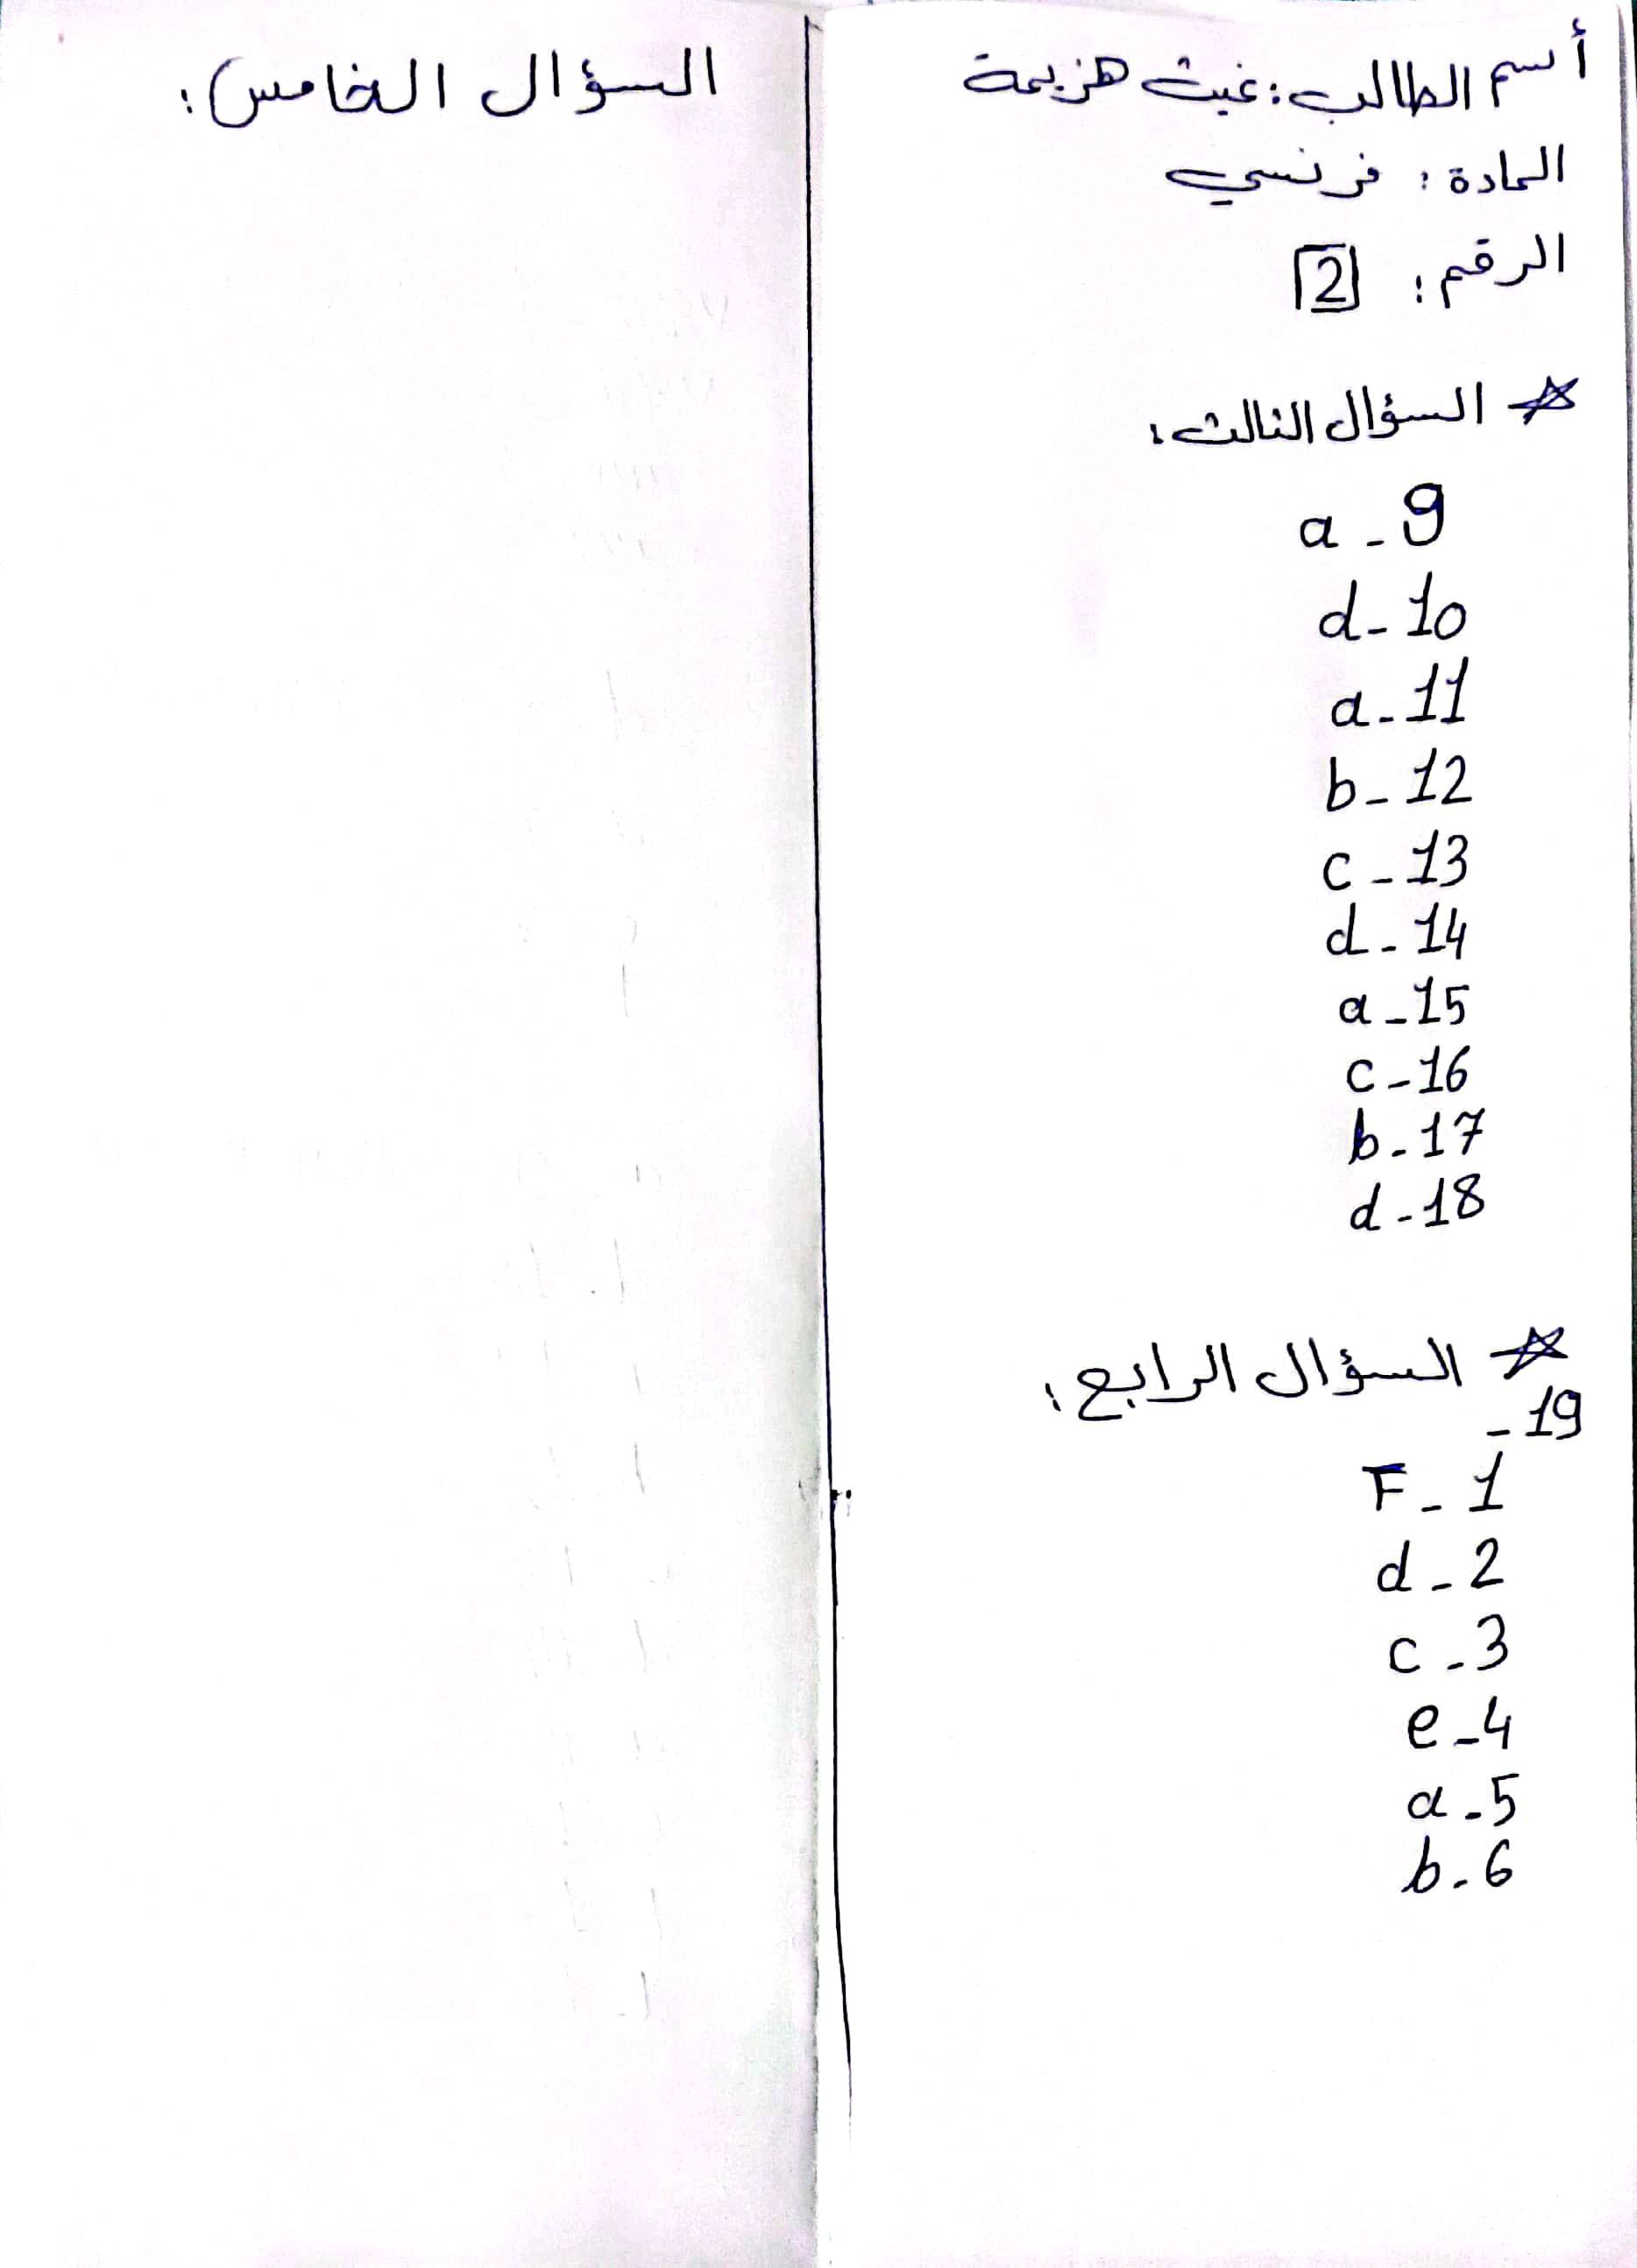 أسم الطالب: غيث هزيمة
المادة: فرنسي
الرقم: 2
السؤال الثالث:
9 - a
10 - d
11 - a
12 - b
13 - c
14 - d
15 - a
16 - c
17 - b
18 - d
السؤال الرابع:
19 -
1 - F
2 - d
3 - c
4 - e
5 - a
6 - b
السؤال الخامس: